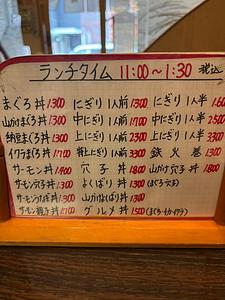 ランチタイム 11:00～1:30 税込
まぐろ丼 1300 にぎり1人前 1300 にぎり1人半 1600
山かけまぐろ丼 1300 中にぎり1人前 1700 中にぎり1人半 2500
納豆まぐろ丼 1300 上にぎり1人前 2300 上にぎり1人半 3300
イクラまぐろ丼 1700 特上にぎり1人前 3300 鉄火巻 1300
サーモン丼 1400 穴子丼 1800 山かけ穴子丼 1800
サーモン穴子丼 1300 よくばり丼 1300
サーモンうなぎ丼 1300 山かけよくばり丼 1300
サーモン親子丼 1700 グルメ丼 1500 (まぐろ・イカ・イクラ)